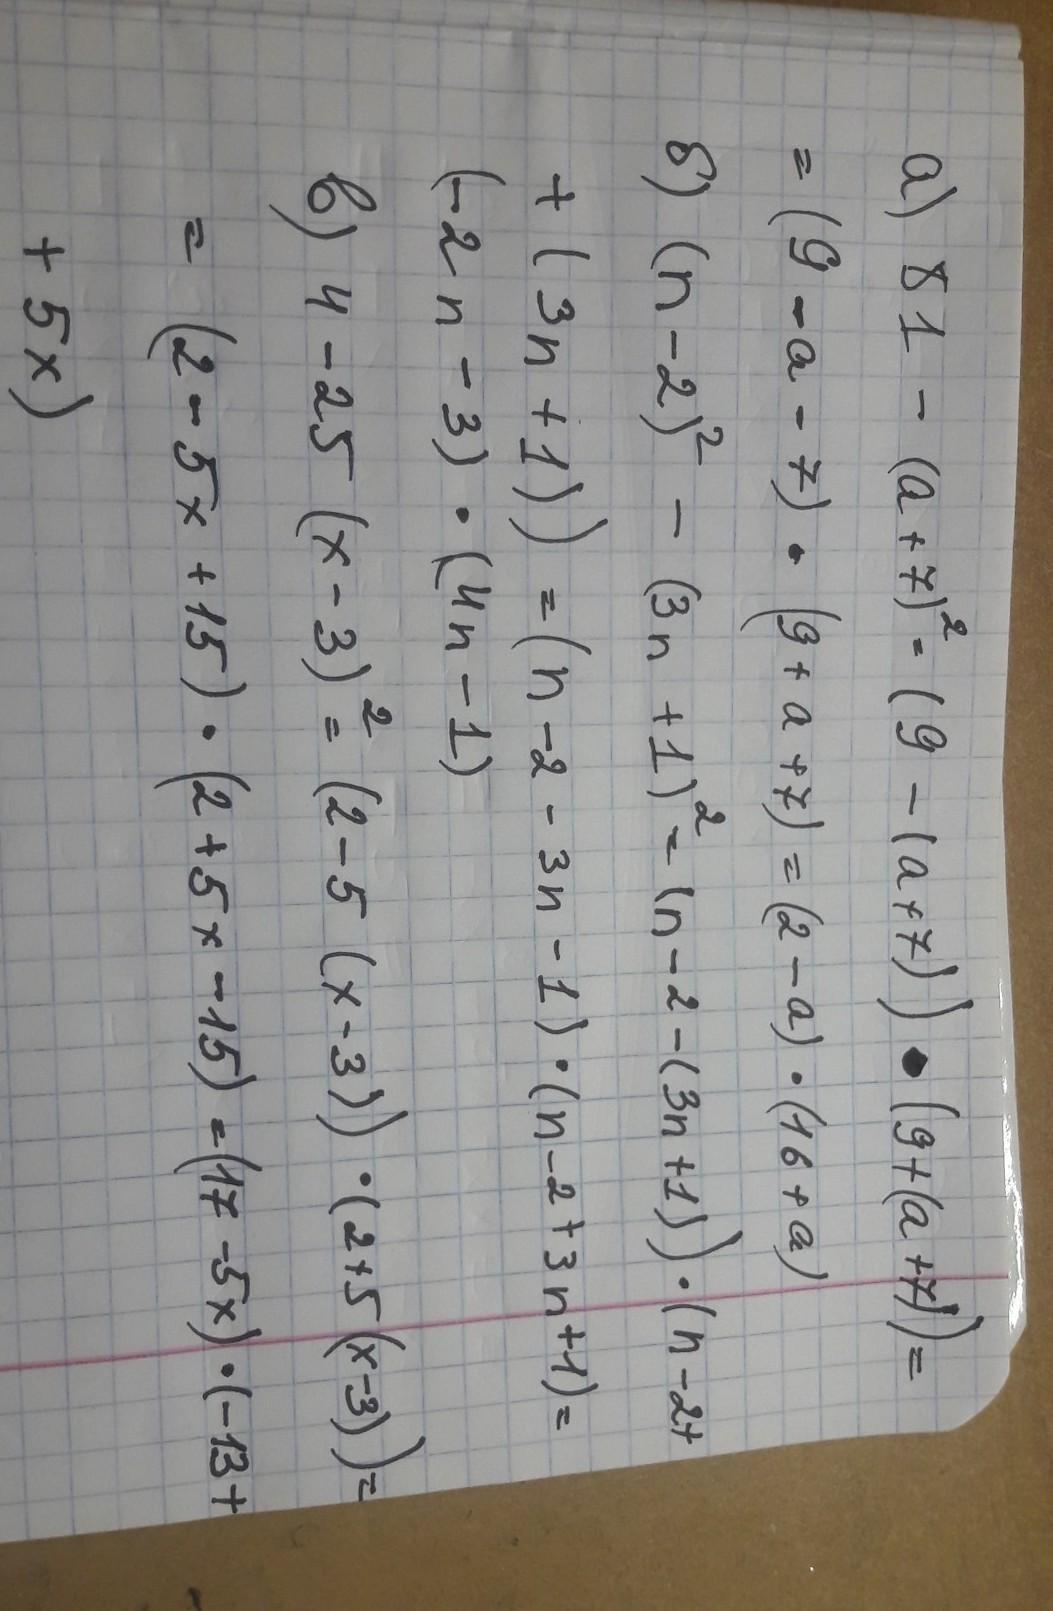 а) 81 - (a+7)² = (9 - (a+7)) • (9+(a+7)) =
= (9 - a - 7) • (9 + a + 7) = (2 - a) • (16 + a)
б) (n - 2)² - (3n + 1)² = (n - 2 - (3n + 1)) • (n - 2 +
+ (3n + 1)) = (n - 2 - 3n - 1) • (n - 2 + 3n + 1) =
(-2n - 3) • (4n - 1)
в) 4 - 25 (x - 3)² = (2 - 5 (x - 3)) • (2 + 5 (x - 3)) =
= (2 - 5x + 15) • (2 + 5x - 15) = (17 - 5x) • (-13 +
+ 5x)